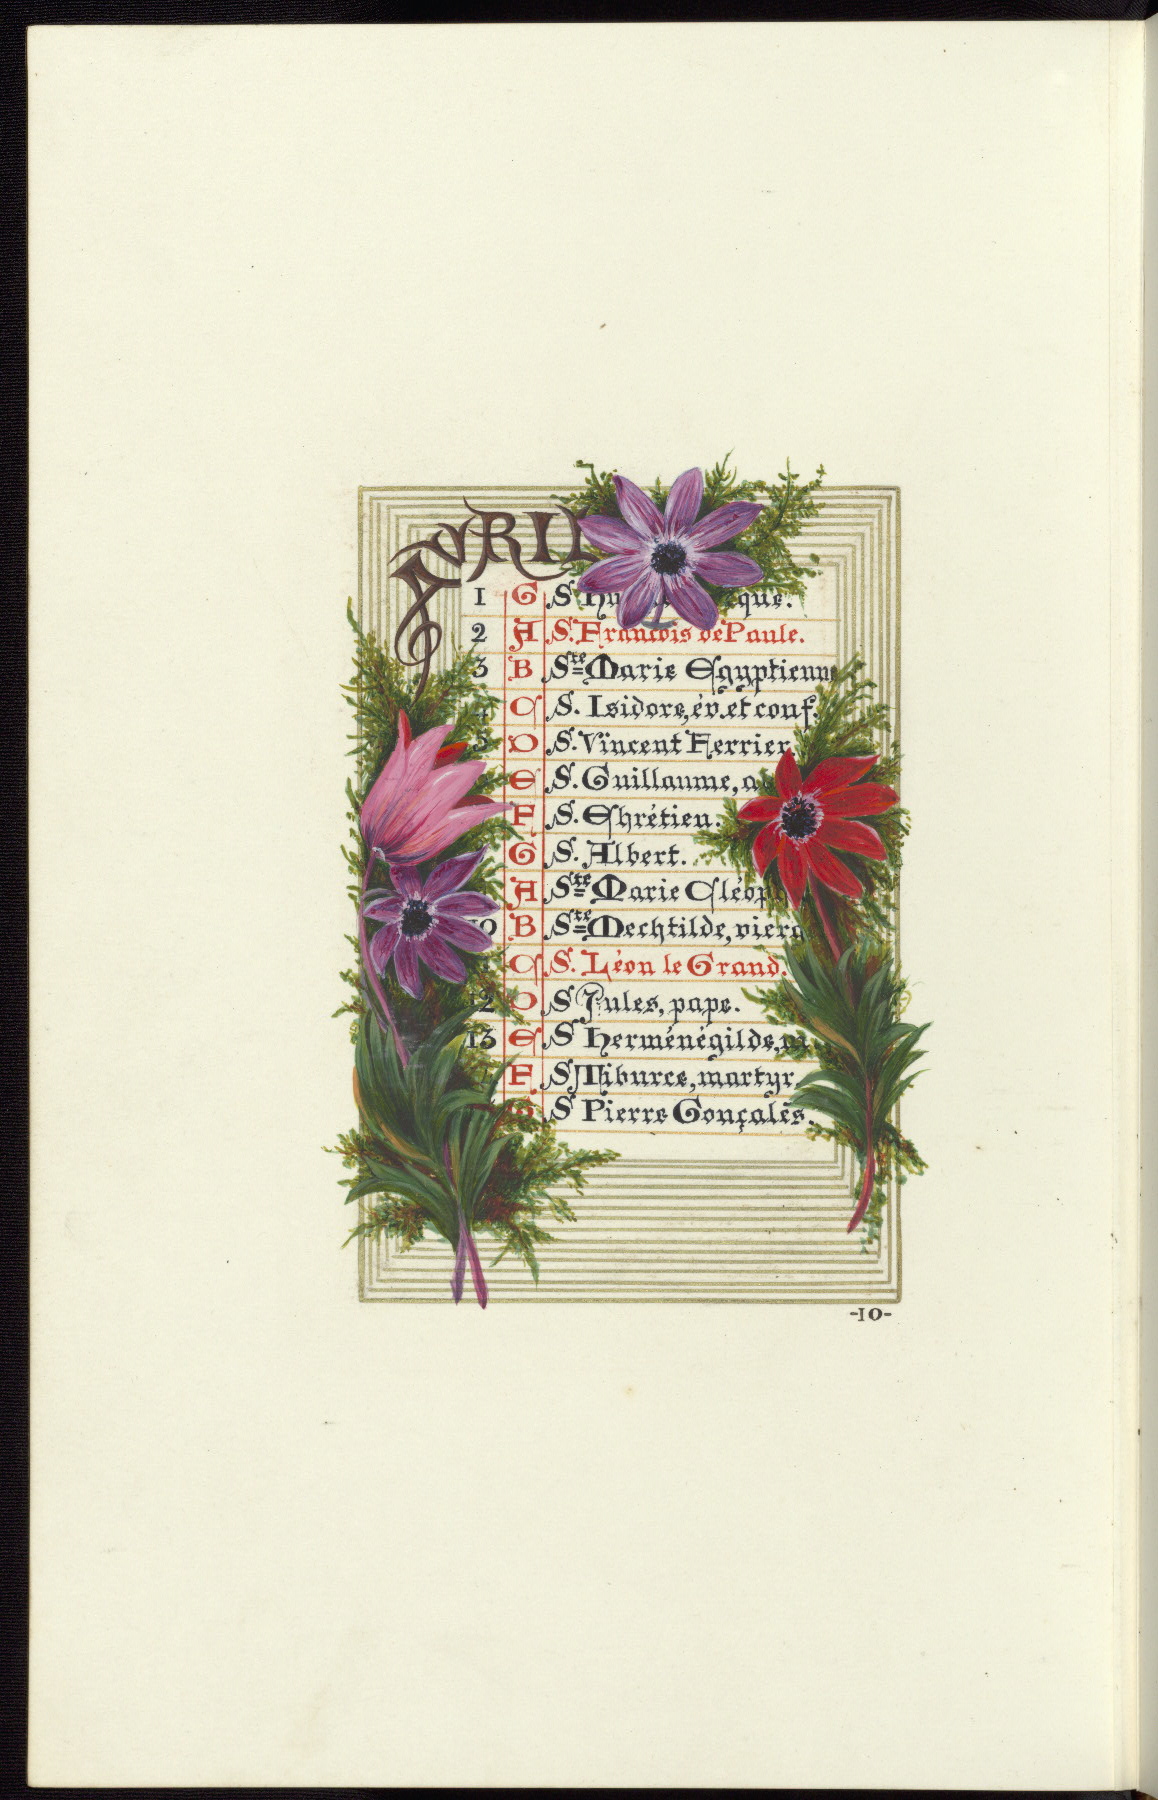 AVRIL
1 G S Hu que.
2 A S. François de Paule.
3 B Ste Marie Egyptienne
4 C S. Isidore, év. et conf.
5 D S. Vincent Ferrier
E S. Guillaume, a
F S. Chrétien.
G S. Albert.
A Ste Marie Cléoph
10 B Ste Mechtilde, vierg
C S. Léon le Grand.
12 D S Jules, pape.
13 E S Herménégilde, m
F S Tiburce, martyr,
G S Pierre Gonçalès.
-10-